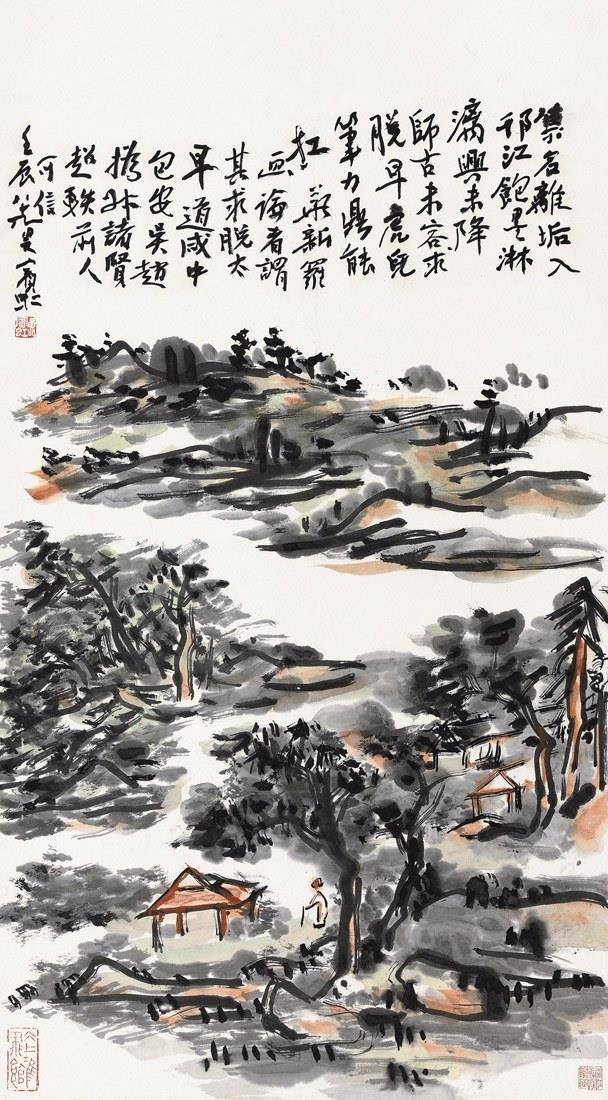 集名離垢入
邗江飽墨淋
漓興未降
師古未容求
脫早虎兒
筆力鼎能
扛 華新羅
画論者謂
其求脫太
早道咸中
包安吳趙
撝叔諸賢
超軼前人
可信
壬辰叟賓虹